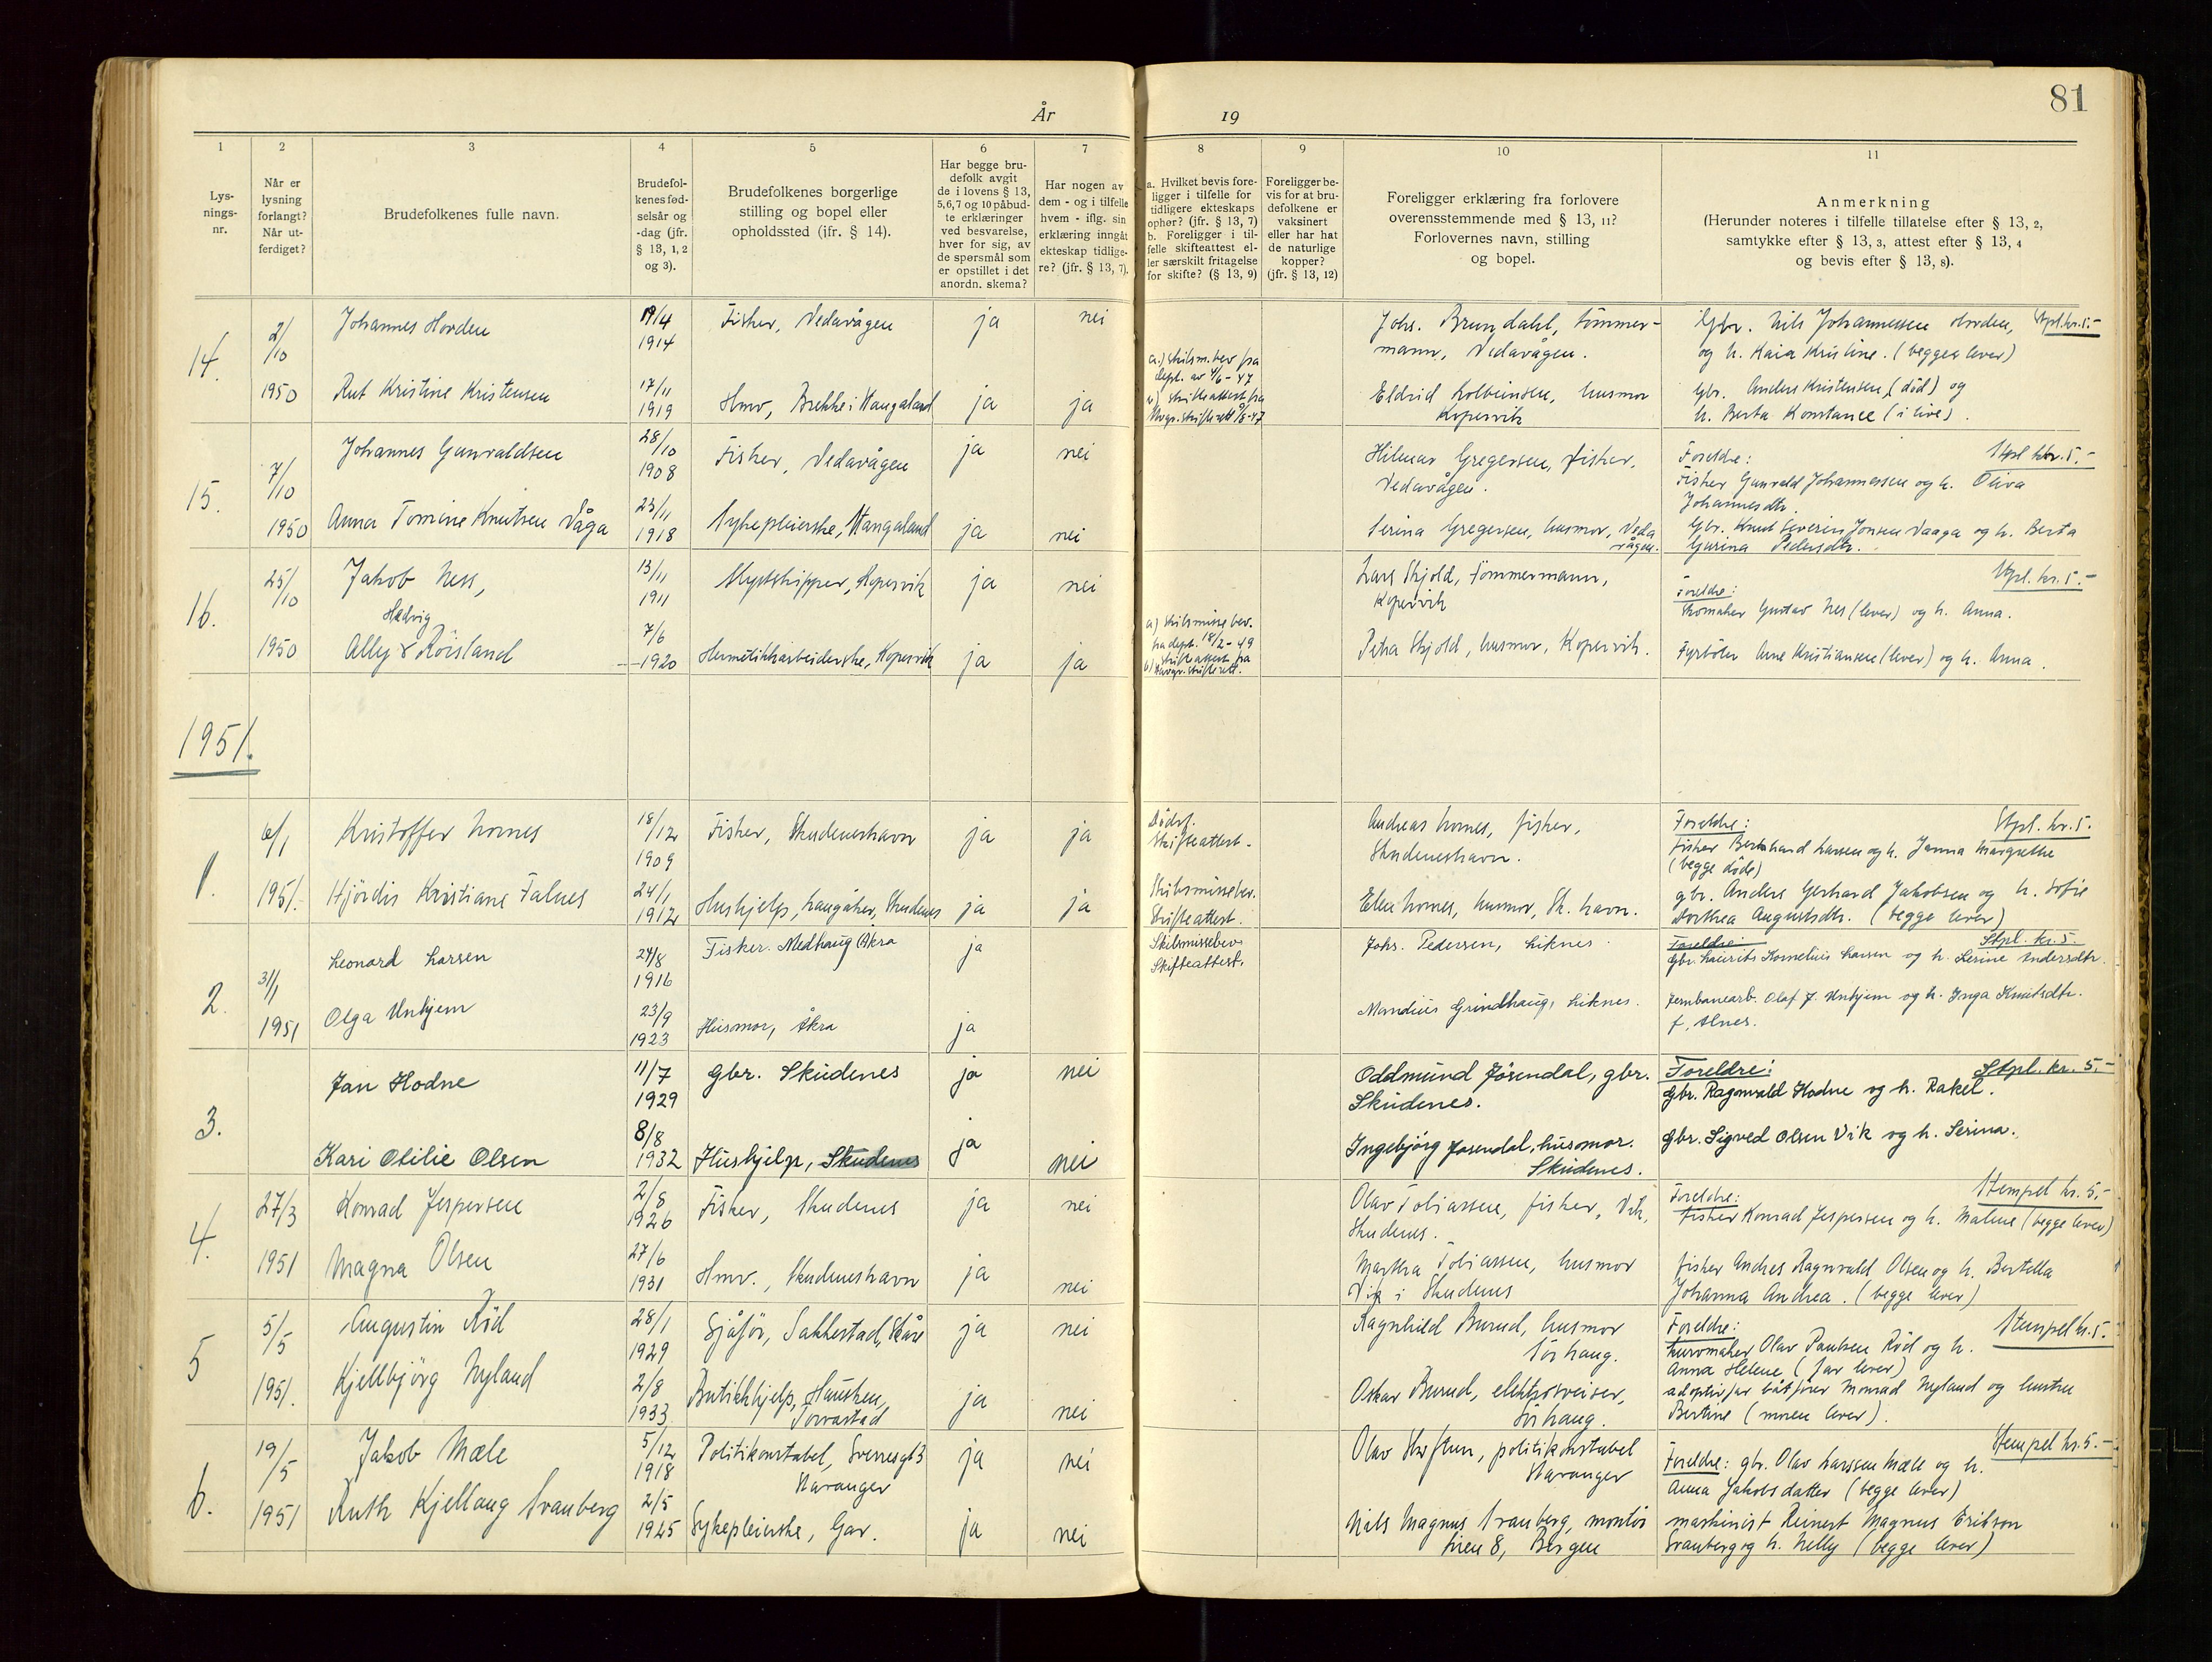 81
År 19
1
Lys-
nings-
nr.
2
Når er
lysning
forlangt?
Når ut-
ferdiget?
3
Brudefolkenes fulle navn.
4
Brudefol-
kenes fød-
selsår og
-dag (jfr.
§ 13, 1, 2
og 3).
5
Brudefolkenes borgerlige
stilling og bopel eller
opholdssted (jfr. § 14).
6
Har begge bru-
defolk avgit
de i lovens § 13,
5,6,7 og 10 påbud-
te erklæringer
ved besvarelse,
hver for sig, av
de spørsmål som
er opstillet i det
anordn. skema?
7
Har nogen av
dem - og i tilfelle
hvem - iflg. sin
erklæring inngåt
ekteskap tidlige-
re? (jfr. § 13, 7).
8
a. Hvilket bevis fore-
ligger i tilfelle for
tidligere ekteskaps
ophør? (jfr. § 13, 7)
b. Foreligger i til-
felle skifteattest el-
ler særskilt fritagelse
for skifte? (§ 13, 9)
9
Foreligger be-
vis for at bru-
defolkene er
vaksinert
eller har hat
de naturlige
kopper?
(jfr. § 13, 12)
10
Foreligger erklæring fra forlovere
overensstemmende med § 13, 11?
Forlovernes navn, stilling
og bopel.
11
Anmerkning
(Herunder noteres i tilfelle tillatelse efter § 13, 2,
samtykke efter § 13, 3, attest efter § 13, 4
og bevis efter § 13, 8).
14.
2/10
1950
Johannes Horden
19/4
1914
Fisker, Vedavågen
ja
nei
Johs. Brundahl, tømmer-
mann, Vedavågen.
Gbr. Nils Johannessen Horden, Stpl. kr. 5.-
og h. Kaia Kristine. (begge lever)
Rut Kristine Kristensen
17/11
1919
Hmv, Brekke i Stangaland
ja
ja
a.) skilsm.bev fra
dept. av 4/6-47
b.) skifteattest fra
Eldrid Kolbeinsen, husmor
Kopervik
Gbr. Anders Kristensen (død) og
h. Berta Konstance (i live).
15.
7/10
1950
Johannes Gunvaldsen
28/10
1908
Fisker, Vedavågen
ja
nei
Hilmar Gregersen, fisker,
Vedavågen.
Foreldre: Stpl kr. 5.-
Fisker Gunvald Johannessen og h. Oliva
Johannesdtr.
Anna Tomine Knutsen Våga
23/11
1918
Sykepleierske, Stangaland
ja
nei
Serina Gregersen, husmor, Veda
vågen.
Gbr. Knut Severin Jonsen Vaaga og h. Berta
Gurina Pedersdtr.
16.
25/10
1950
Jakob Ness,
13/11
1911
Kystskipper, Kopervik
ja
nei
Lars Skjold, Tømmermann,
Kopervik
Stpl. kr. 5.-
Foreldre:
Skomaker Gustav Nes (lever) og h. Anna.
Hedvig
Ally Röisland
7/6
1920
Hermetikkarbeiderske, Kopervik
ja
ja
a) skilsmissebev.
fra dept. 18/2-49
b) skifteattest fra
Petra Skjold, husmor, Kopervik.
Fyrbøter Arne Kristiansen (lever) og h. Anna.
1951.
1.
6/1
1951.
Kristoffer Lornes
18/12
1909
Fisker, Skudeneshavn
ja
ja
Dødsf.
Skifteattest.
Andreas Lornes, fisker,
Skudeneshavn.
Foreldre: Stpl. kr. 5.
Fisker Bernhard Larsen og h. Janna Margrethe
(begge døde)
Hjördis Kristiane Falnes
24/1
1912
Hushjelp, Langåker, Skudenes
ja
ja
Skilsmissebev.
Skifteattest.
Elen Lornes, husmor, Sk. havn.
gbr. Anders Gerhard Jakobsen og h. Sofie
Dorthea Augustsdtr. (begge lever)
2.
31/1
1951
Leonard Larsen
24/8
1916
Fisker. Medhaug (Åkra
ja
Skilsmissebev.
Skifteattest.
Johs. Pedersen, Liknes.
Foreldre: Stpl. kr. 5.
Gbr. Laurits Kornelius Larsen og h. Serine Andersdtr.
Olga Unhjem
23/9
1923
Husmor, Åkra
ja
Mandius Grindhaug, Liknes.
Jernbanearb. Olaf J. Unhjem og h. Inga Knutsdtr.
f. Alnes.
3.
Jan Hodne
11/7
1929
gbr. Skudenes
ja
nei
Oddmund Jøsendal, gbr.
Skudenes.
Foreldre: Stpl. kr. 5.-
Gbr. Ragnvald Hodne og h. Rakel.
Kari Otilie Olsen
8/8
1932
Hushjelp, Skudenes
ja
nei
Ingebjörg Jøsendal, husmor.
Skudenes.
Gbr. Sigved Olsen Vik og h. Serina.
4.
27/3
1951
Konrad Jespersen
2/8
1926
Fisker, Skudenes
ja
nei
Olav Tobiassen, fisker, Vik,
Skudenes.
Foreldre: Stempel kr. 5.-
fisker Konrad Jespersen og h. Malene (begge lever)
Magna Olsen
27/6
1931
Hmv., Skudeneshavn
ja
nei
Martha Tobiassen, husmor
Vik i Skudenes
fisker Andres Ragnvald Olsen og h. Bertella
Johanna Andrea. (begge lever)
5
5/5
1951.
Augustin Rød
28/1
1929
Sjåfør, Sakkestad, Skåre
ja
nei
Ragnhild Burud, husmor
Sørhaug.
Foreldre: Stempel kr. 5.
kurvmaker Olav Paulsen Rød og h.
Anna Helene (far lever)
Kjellbjörg Nyland
2/8
1933
Butikkhjelp, Hausken,
Torvastad
ja
nei
Oskar Burud, elektrosveiser,
Sörhaug.
adoptivfar båtfører Monrad Nyland og hustru
Bertine (moren lever).
6.
19/5
1951
Jakob Mæle
5/12
1918
Politikonstabel, Sverresgt 3
Stavanger
ja
nei
Olav Skiftun, politikonstabel
Stavanger
Stempel kr. 5.-
Foreldre: gbr. Olav Larssen Mæle og h.
Anna Jakobsdatter (begge lever)
Ruth Kjellaug Svanberg
2/5
1925
Sykepleierske, Gar.
ja
nei
Nils Magnus Svanberg, montør
8, Bergen
maskinist Reinert Magnus Erikson
Svanberg og h. Nelly (begge lever)